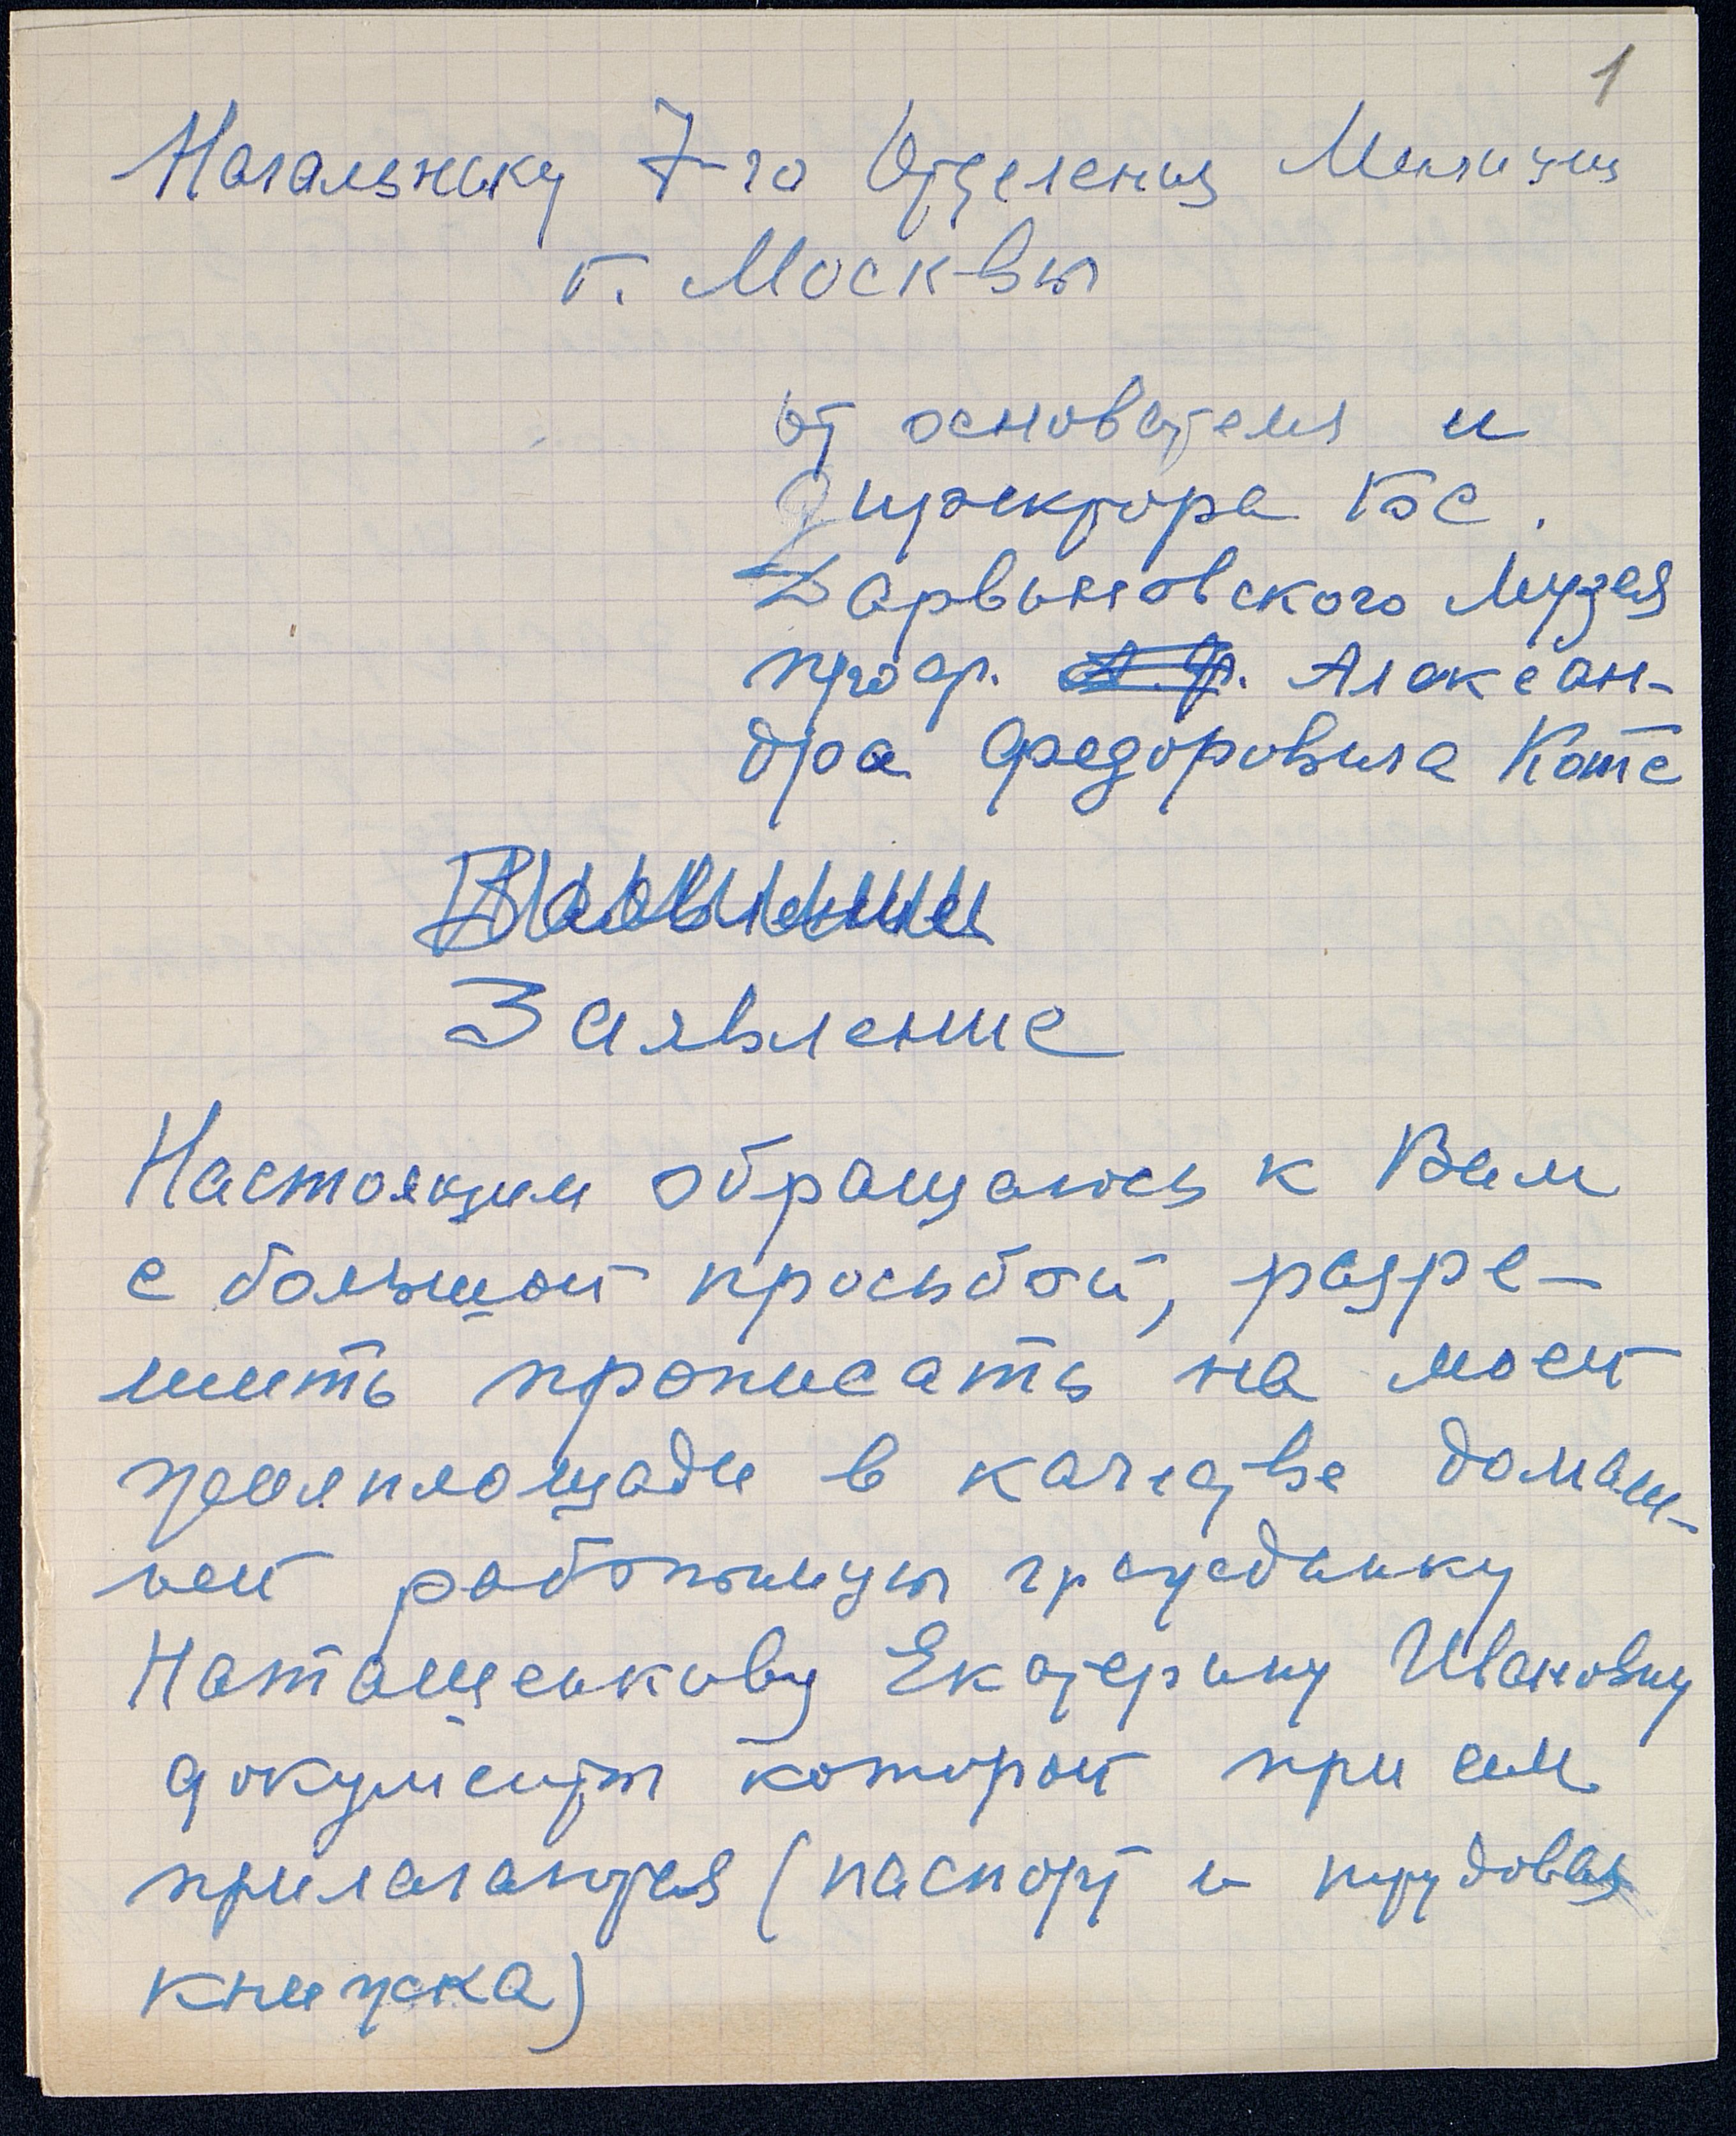 1
Начальнику 7-го Отделения Милиции
г. Москвы
от основателя и
Директора Гос.
Дарвиновского Музея
проф. А.Ф. Алексан-
дра Федоровича Котс
Заявление
Настоящим обращаюсь к Вам
с большой просьбой, разре-
шить прописать на моей
жилплощади в качестве домаш-
ней работницы гражданку
Наташенькову Екатерину Ивановну
документы которой при сем
прилагаются (паспорт и трудовая
книжка)